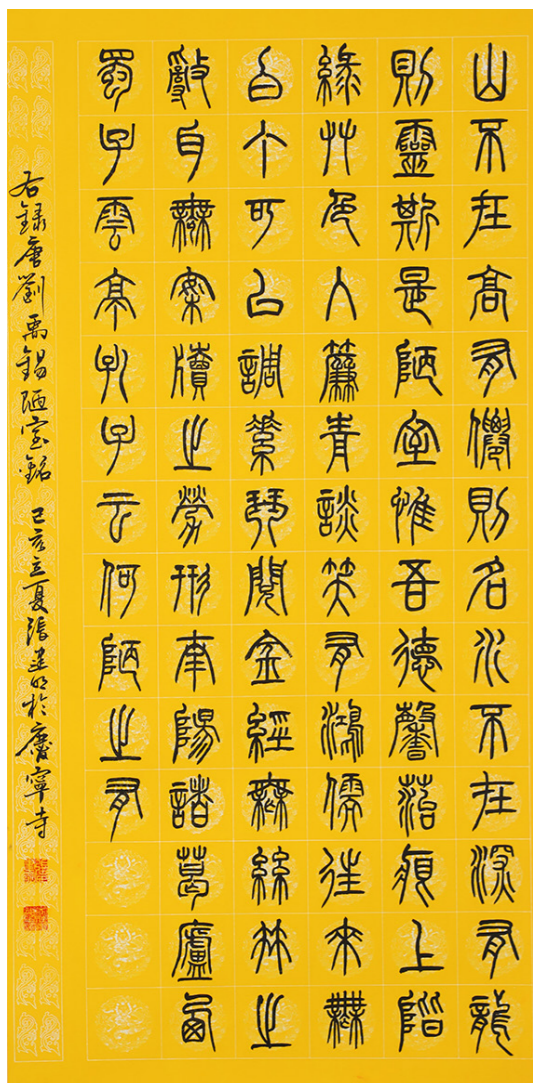 山不在高有僊則名水不在深有龍
則靈斯是陋室惟吾德馨菭痕上階
綠艸色入簾青談笑有鴻儒往來無
白丁可以調素琴閱金經無絲竹之
亂耳無案牘之勞形南陽諸葛廬西
蜀子雲亭孔子云何陋之有
右錄唐劉禹錫陋室銘 己亥立夏張建明於慶寧寺